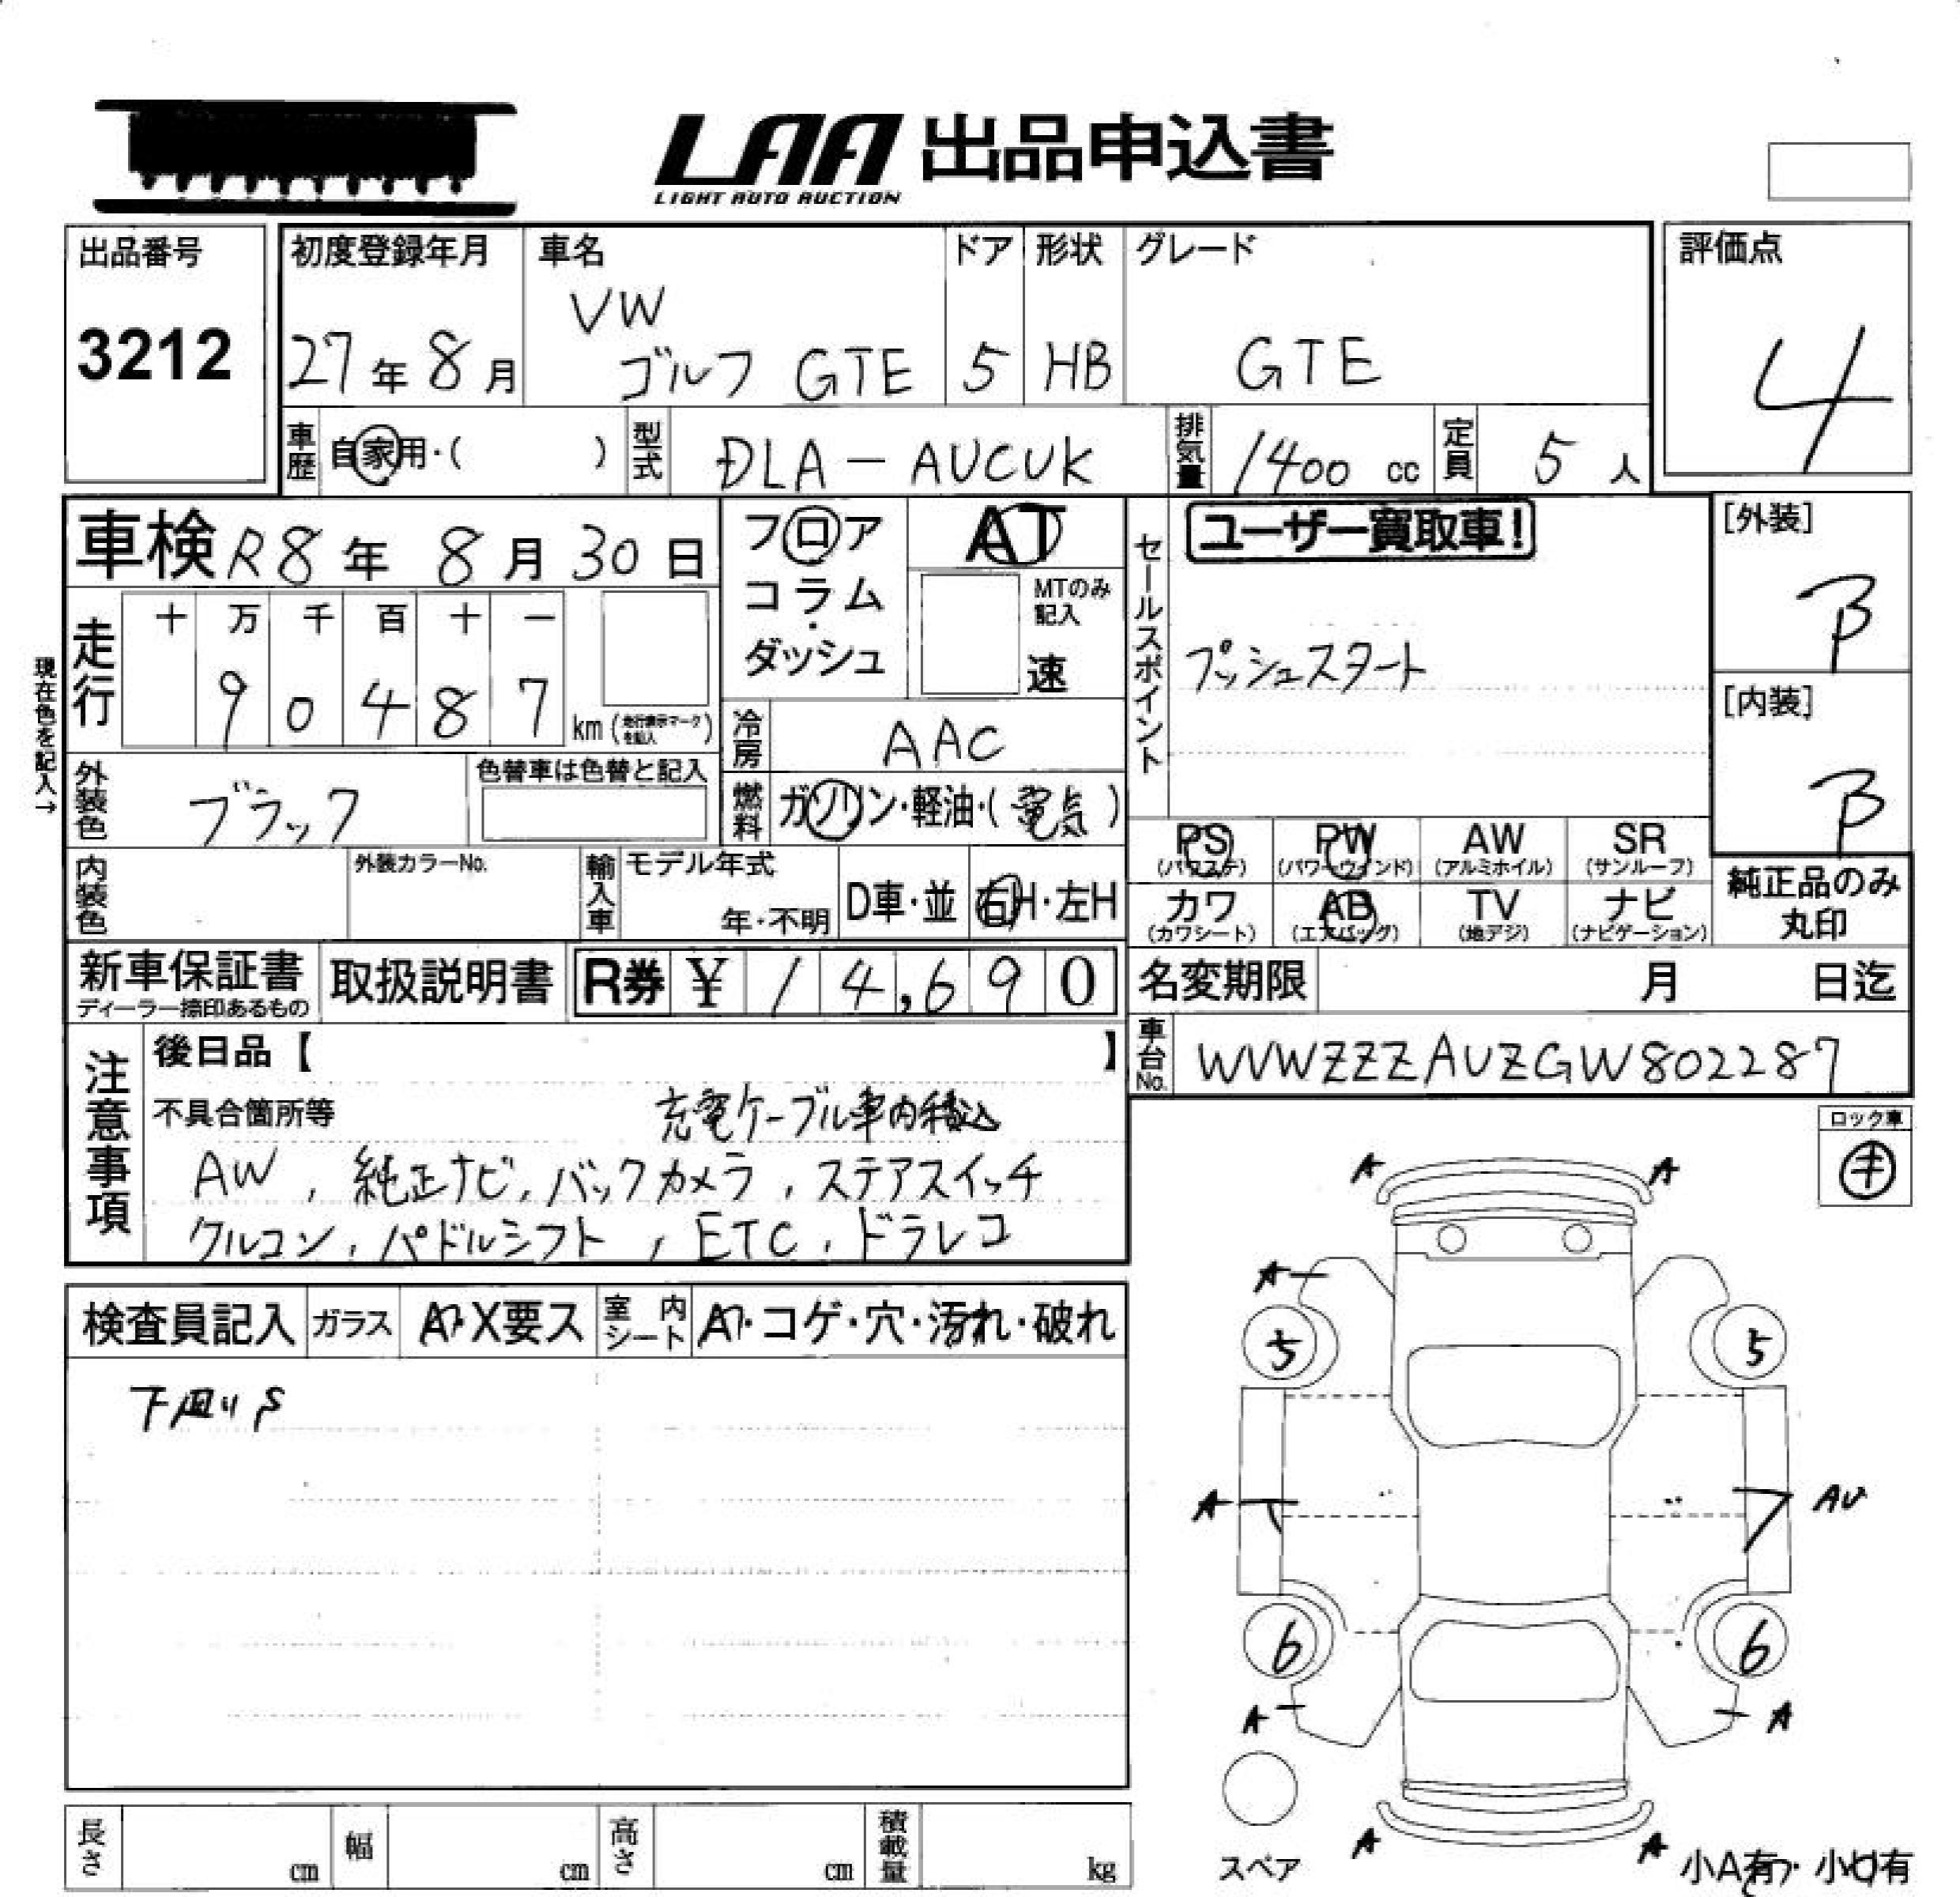 LAA 出品申込書
LIGHT AUTO AUCTION
出品番号
3212
初度登録年月
27年 8月
車名
VW
ゴルフ GTE
ドア
5
形状
HB
グレード
GTE
評価点
4
車歴 自家用・( )
型式 DLA-AUCUK
排気量 1400 cc
定員 5 人
車検 R8年 8月 30日
フロア
コラム
・
ダッシュ
AT
MTのみ
記入
速
セールスポイント
ユーザー買取車!
プッシュスタート
[外装]
B
[内装]
B
現在色を記入→
走行
十 万 千 百 十 一
9 0 4 8 7 km (走行表示マークを記入)
冷房 AAC
外装色 ブラック
色替車は色替と記入
燃料 ガソリン・軽油・( 電気 )
内装色
外装カラーNo.
輸入車
モデル年式
年・不明
D車・並
右H・左H
PS (パワステ)
PW (パワーウインド)
AW (アルミホイル)
SR (サンルーフ)
カワ (カワシート)
AB (エアバック)
TV (地デジ)
ナビ (ナビゲーション)
純正品のみ
丸印
新車保証書
ディーラー捺印あるもの
取扱説明書
R券 ¥ 14,690
名変期限 月 日迄
車台No. WVWZZZAUZGW802287
注意事項
後日品【 】
不具合箇所等
充電ケーブル車内積込
AW , 純正ナビ, バックカメラ , ステアスイッチ
クルコン , パドルシフト , ETC , ドラレコ
ロック車
キ
検査員記入 ガラス
X要ス
室内シート
コゲ・穴・汚れ・破れ
下廻りS
A A
A
5 5
A AU
6 6
A A
スペア
A A
小A有 ・ 小U有
長さ cm
幅 cm
高さ cm
積載量 kg